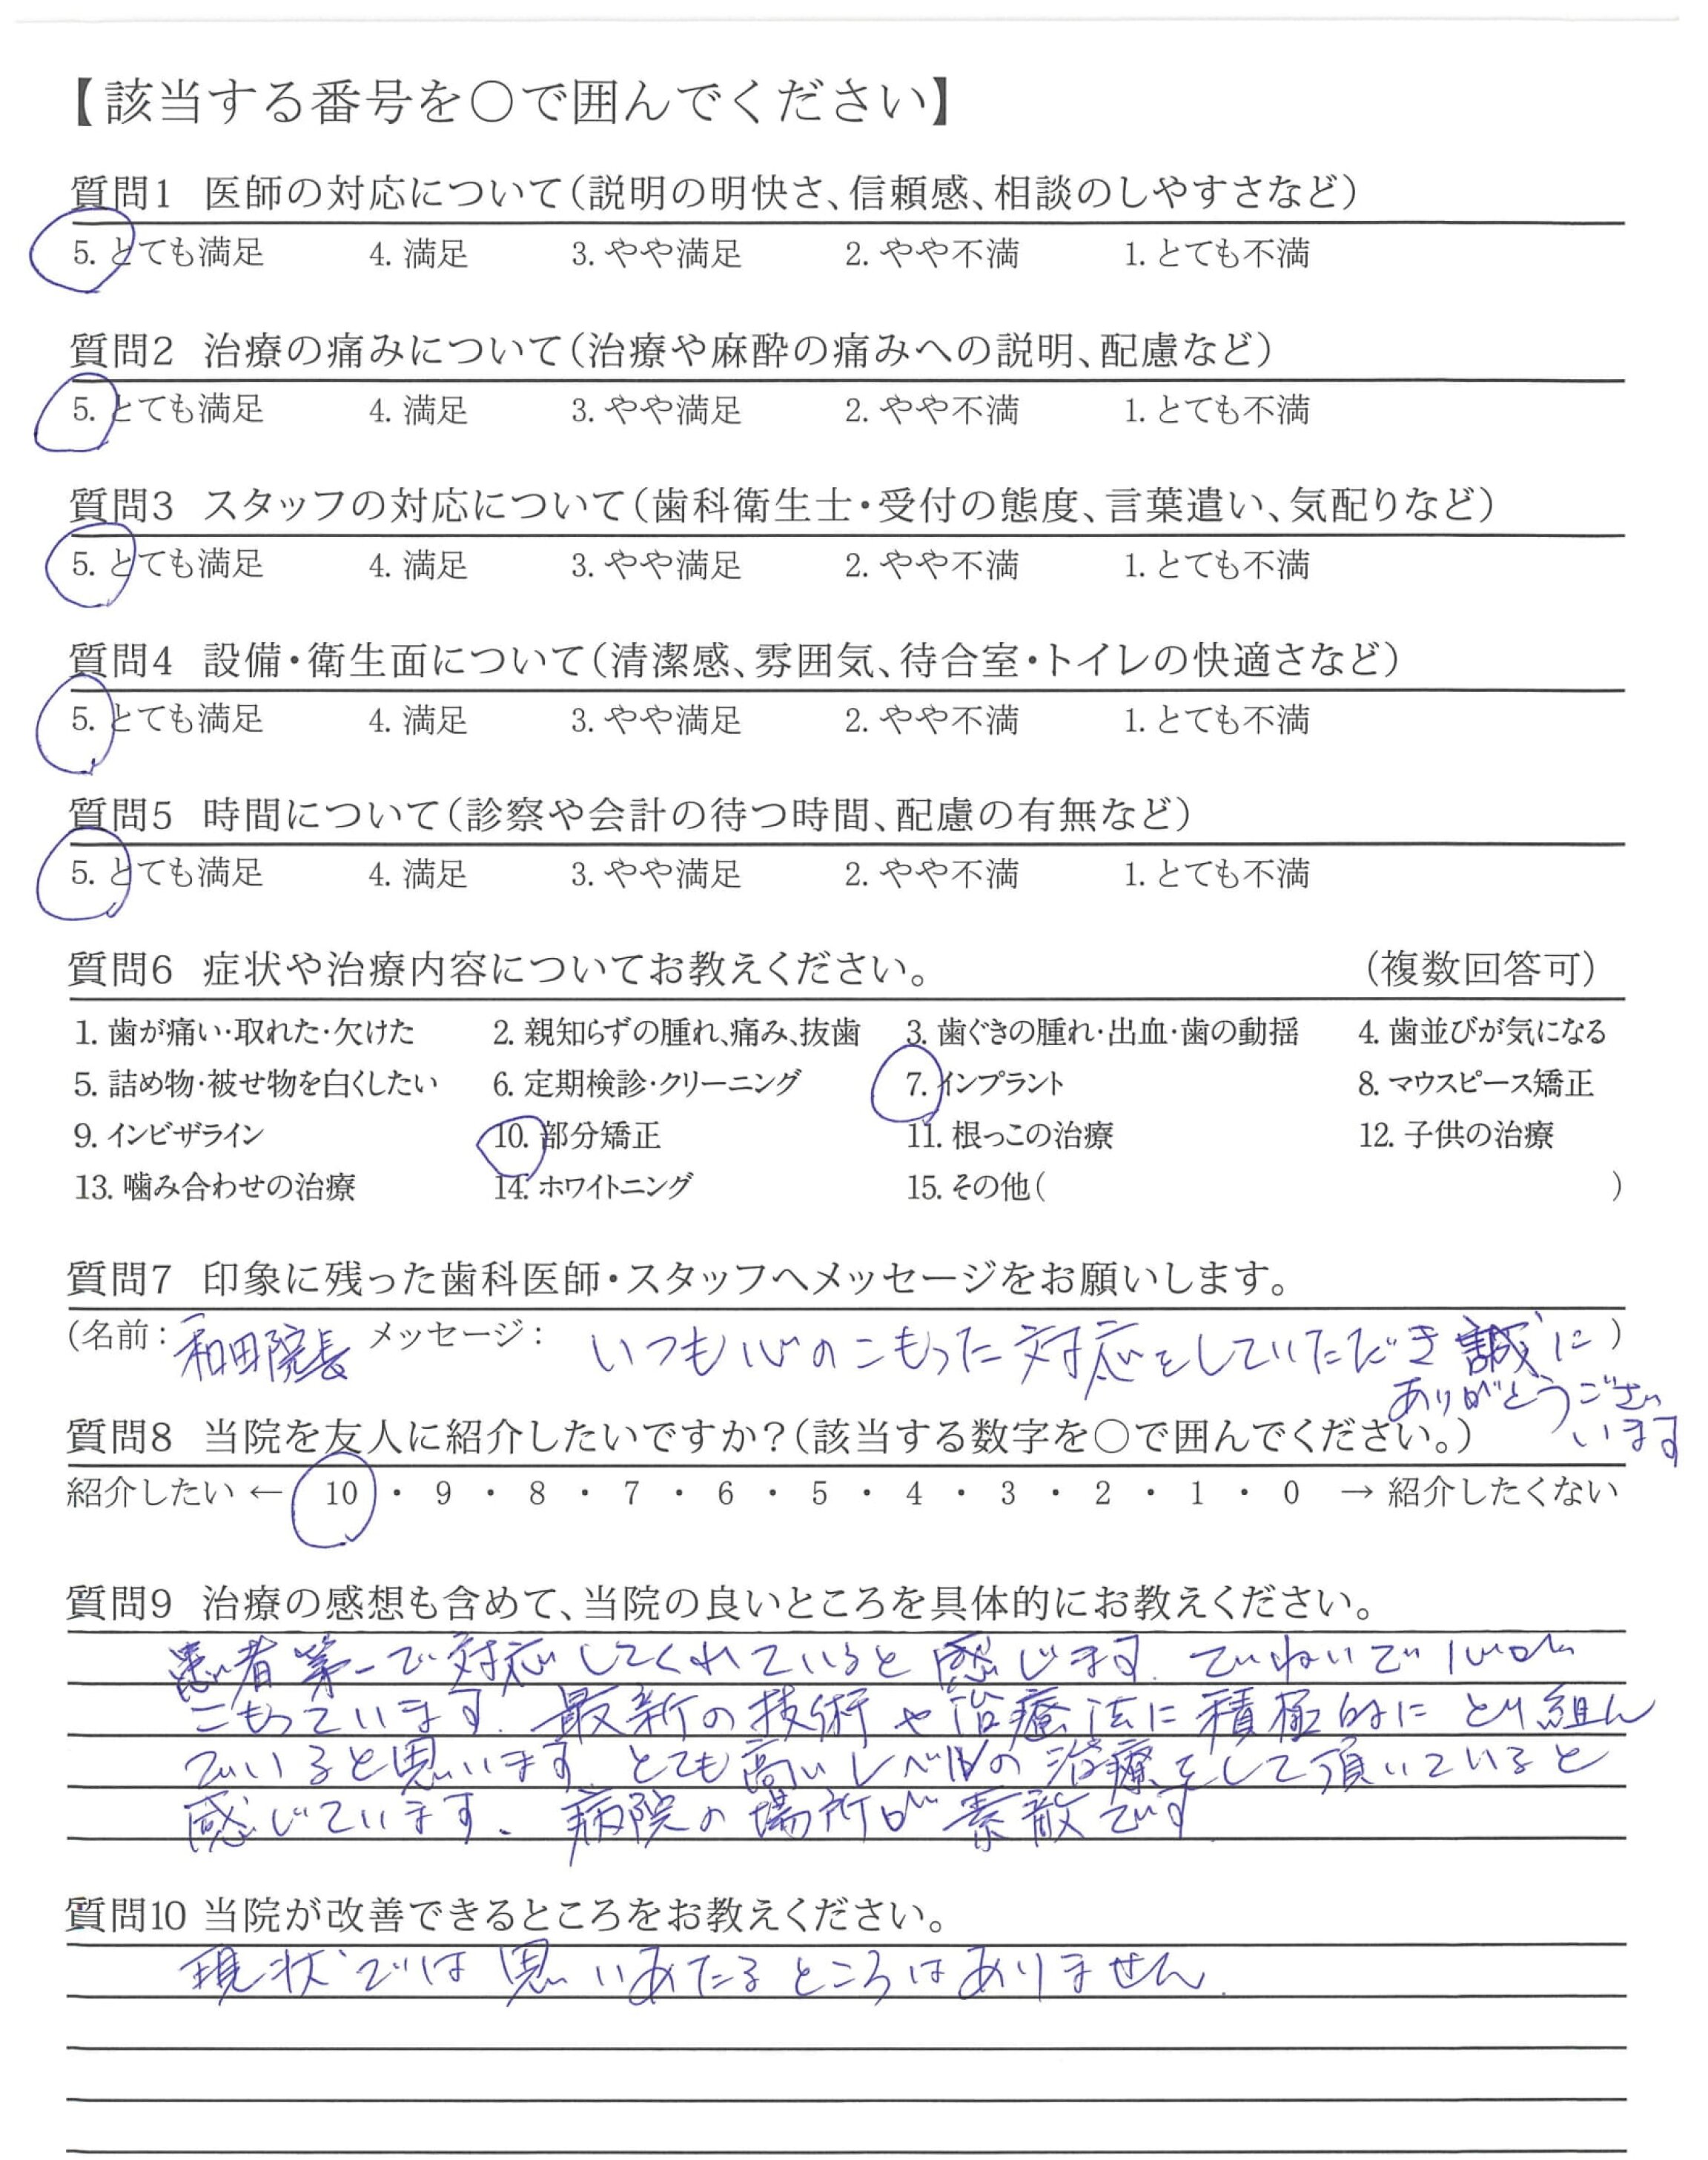 【該当する番号を○で囲んでください】
質問1 医師の対応について(説明の明快さ、信頼感、相談のしやすさなど)
5. とても満足 4. 満足 3. やや満足 2. やや不満 1. とても不満
質問2 治療の痛みについて(治療や麻酔の痛みへの説明、配慮など)
5. とても満足 4. 満足 3. やや満足 2. やや不満 1. とても不満
質問3 スタッフの対応について(歯科衛生士・受付の態度、言葉遣い、気配りなど)
5. とても満足 4. 満足 3. やや満足 2. やや不満 1. とても不満
質問4 設備・衛生面について(清潔感、雰囲気、待合室・トイレの快適さなど)
5. とても満足 4. 満足 3. やや満足 2. やや不満 1. とても不満
質問5 時間について(診察や会計の待つ時間、配慮の有無など)
5. とても満足 4. 満足 3. やや満足 2. やや不満 1. とても不満
質問6 症状や治療内容についてお教えください。 (複数回答可)
1. 歯が痛い・取れた・欠けた 2. 親知らずの腫れ、痛み、抜歯 3. 歯ぐきの腫れ・出血・歯の動揺 4. 歯並びが気になる
5. 詰め物・被せ物を白くしたい 6. 定期検診・クリーニング 7. インプラント 8. マウスピース矯正
9. インビザライン 10. 部分矯正 11. 根っこの治療 12. 子供の治療
13. 噛み合わせの治療 14. ホワイトニング 15. その他( )
質問7 印象に残った歯科医師・スタッフへメッセージをお願いします。
(名前: 和田院長 メッセージ: いつも心のこもった対応をしていただき誠に)
ありがとうござい
います
質問8 当院を友人に紹介したいですか?(該当する数字を○で囲んでください。)
紹介したい ← 10 ・ 9 ・ 8 ・ 7 ・ 6 ・ 5 ・ 4 ・ 3 ・ 2 ・ 1 ・ 0 → 紹介したくない
質問9 治療の感想も含めて、当院の良いところを具体的にお教えください。
患者第一で対応してくれていると感じます. ていねいで心が
こもっています. 最新の技術や治療法に積極的にとり組ん
でいると思います. とても高いレベルの治療をして頂いていると
感じています. 病院の場所が素敵です.
質問10 当院が改善できるところをお教えください。
現状では思いあたるところはありません.